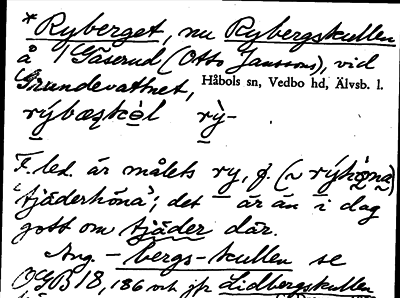 *Ryberget, nu Rybergskullen
å 1 Gäserud (Otto Janssons), vid
Grundevattnet, Håbols sn, Vedbo hd, Älvsb. l.
rýbæʂkòl rỳ-
F. led. är målets ry, f. (~ rýhö̀na ~)
'tjäderhöna'; det är än i dag
gott om tjäder där.
Ang. -bergs-kullen se
OGB 18, 186 och jfr Lidbergskullen